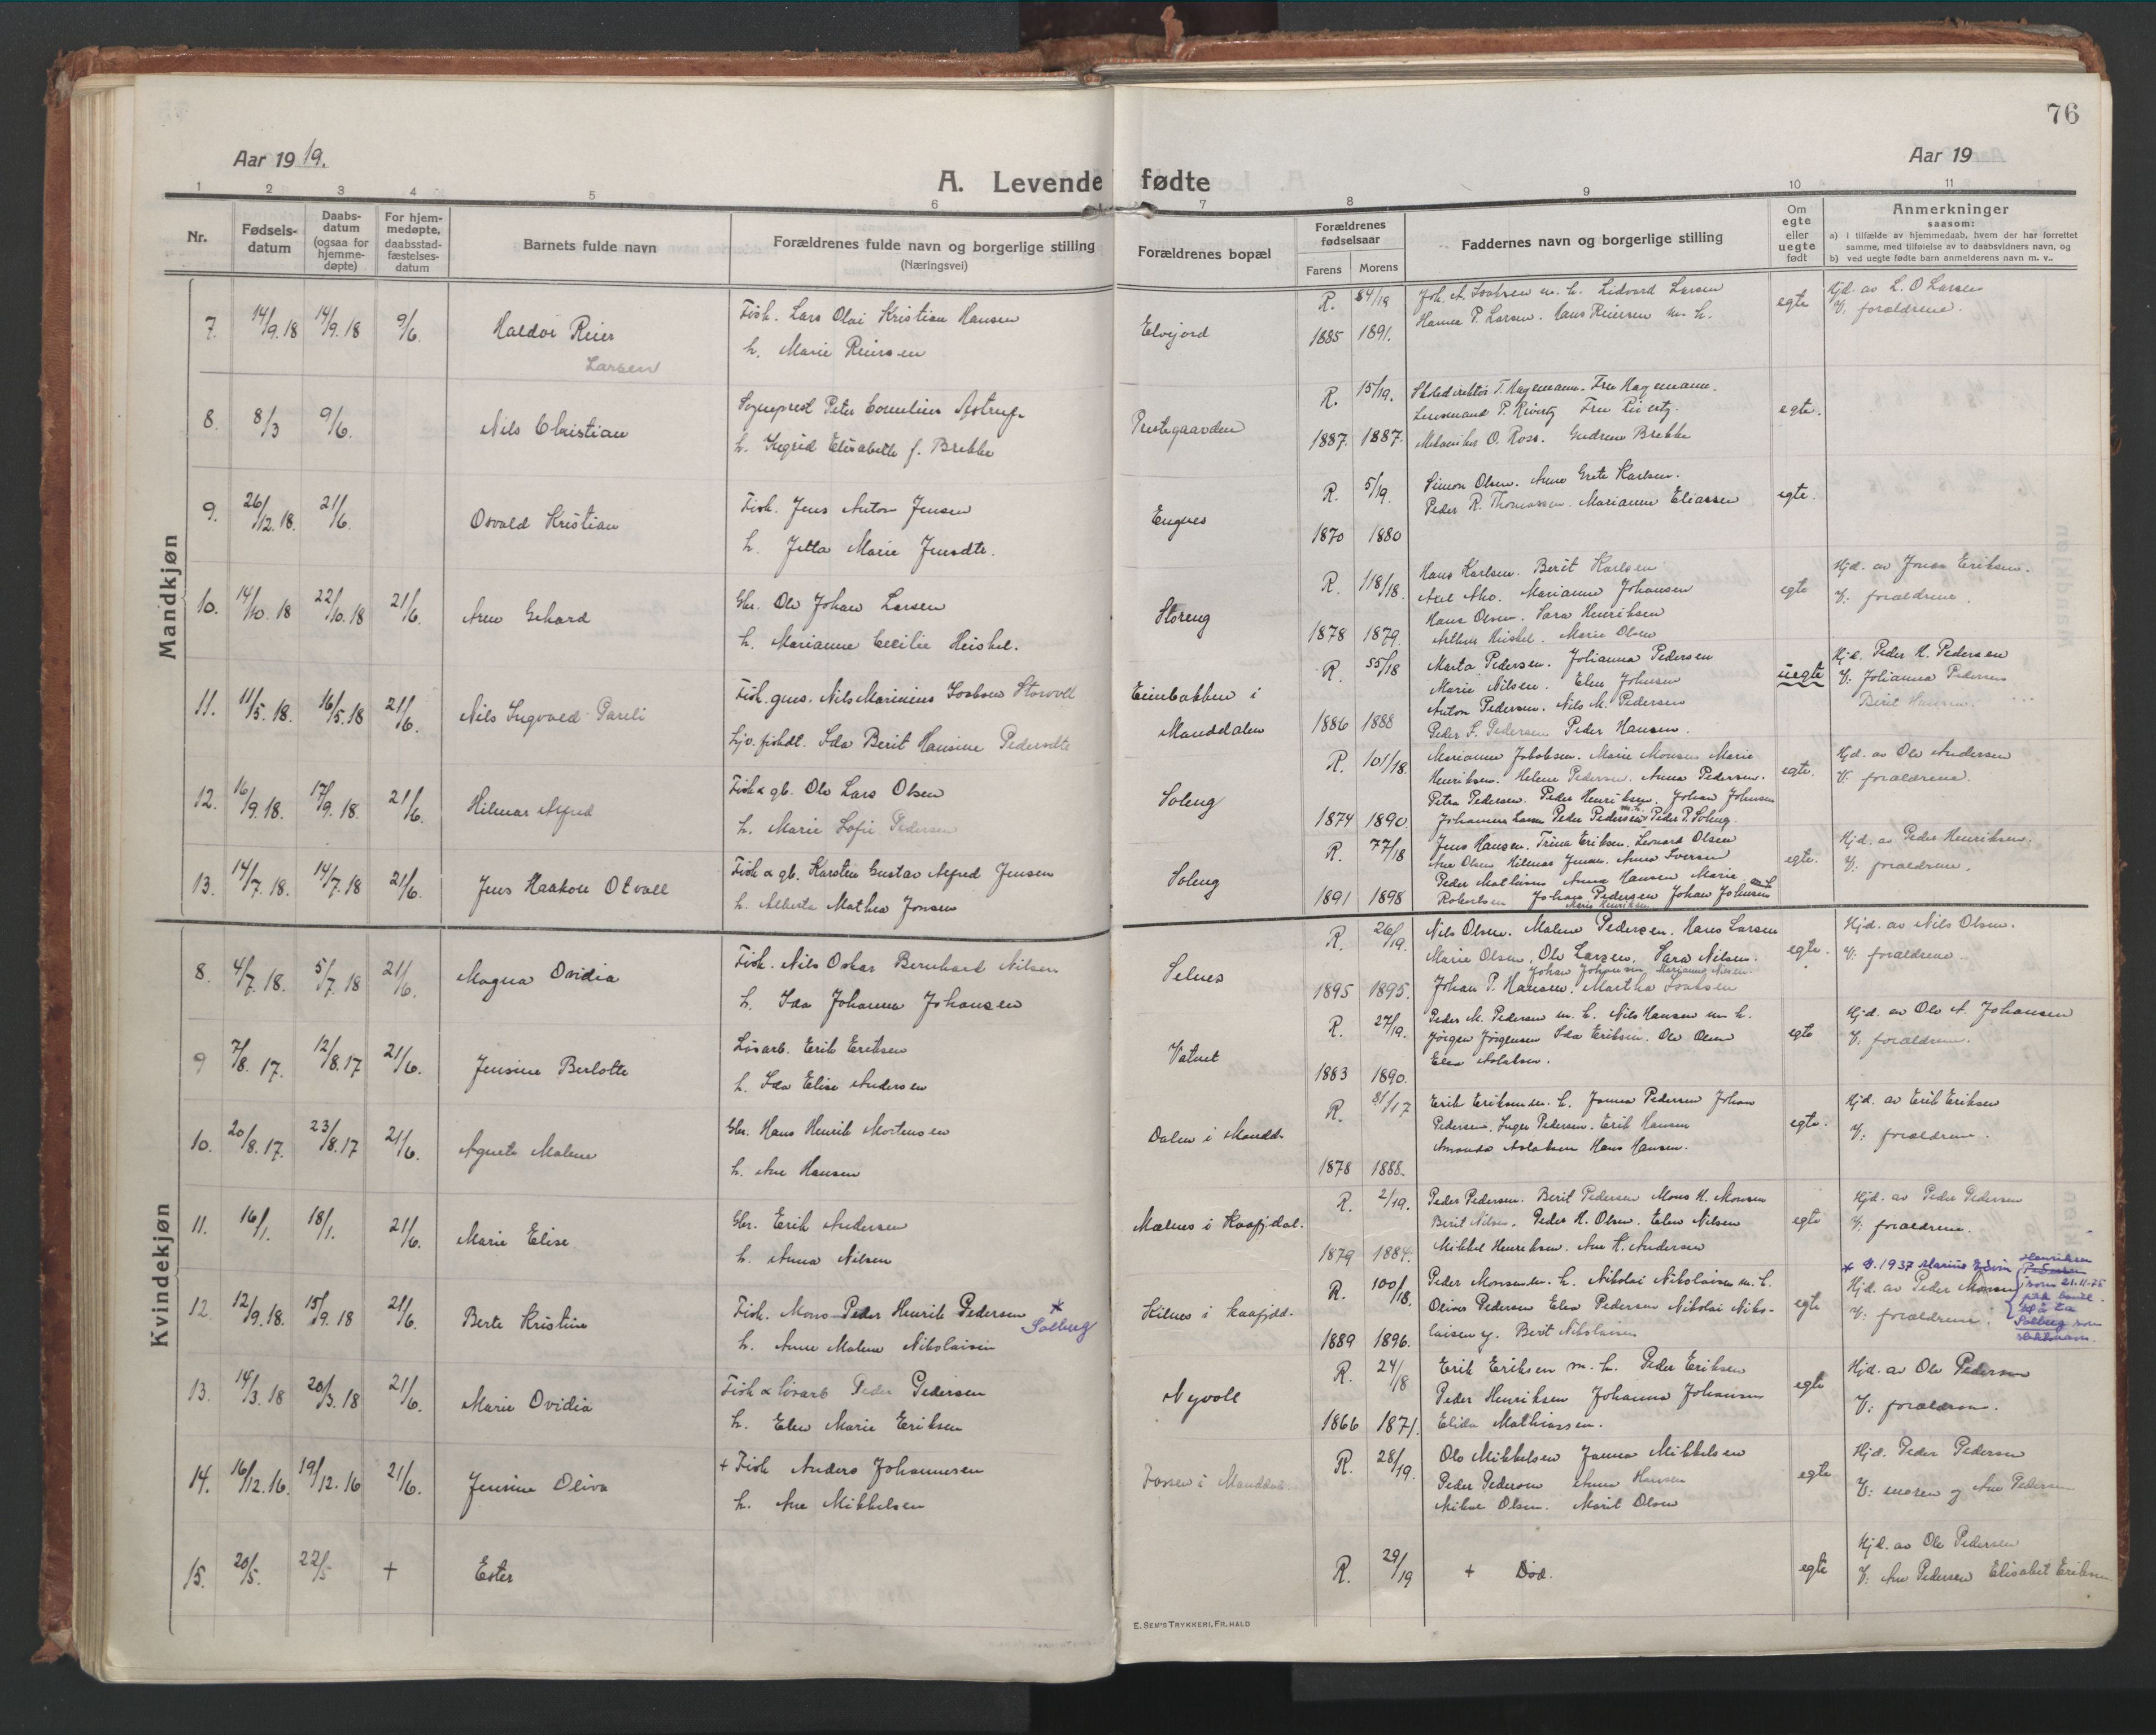 76
Aar 1919.
Aar 19
A. Levende fødte
1 2 3 4 5 6 7 8 9 10 11
Nr.
Fødsels-
datum
Daabs-
datum
(ogsaa for
hjemme-
døpte)
For hjem-
medøpte,
daabsstad-
fæstelses-
datum
Barnets fulde navn
Forældrenes fulde navn og borgerlige stilling
(Næringsvei)
Forældrenes bopæl
Forældrenes
fødselsaar
Farens Morens
Faddernes navn og borgerlige stilling
Om
egte
eller
uegte
født
Anmerkninger
saasom:
a) i tilfælde av hjemmedaab, hvem der har forrettet
samme, med tilføielse av to daabsvidners navn, og
b) ved uegte fødte barn anmelderens navn m. v..
Mandkjøn
7. 14/9.18 14/9.18 9/6. Haldor Reier
Larsen
Fisk. Lars Olai Kristian Hansen
h. Marie Reiersen
Elvejord
R. 84/18
1885 1891.
Joh. A. Isaksen m. h. Lidvard Larsen
Hanna P. Larsen. Hans Reiersen m. h.
egte
Hjd. av L. O Larsen
V. forældrene.
8. 8/3 9/6. Nils Christian
Sogneprest Peter Cornelius Astrup
h. Ingrid Elisabeth f. Brekke
Prestegaarden
R. 15/19.
1887. 1887.
Skoledirektør T. Hagemann. Fru Hagemann.
Lensmand P. Rivertz Fru Rivertz.
Mekaniker O. Ross. Gudrun Brekke
egte.
9. 26/12.18. 21/6. Osvald Kristian
Fisk. Jens Anton Jensen
h. Jetta Marie Jensdtr.
Engnes
R. 5/19.
1870 1880
Simon Olsen. Anna Grete Karlsen.
Peder R. Thomassen. Marianne Eliassen
egte.
10. 14/10.18 22/10.18 21/6. Arne Gehard
Gbr. Ole Johan Larsen
h. Marianne Cecilie Heiskel.
Storeng
R. 118/18.
1878 1879.
Hans Karlsen. Berit Karlsen
Axel Aho. Marianne Johansen
Hans Olsen. Sara Henriksen
Arthur Heiskel. Marie Olsen
egte
Hjd. av Jonas Eriksen.
V: forældrene.
11. 11/5.18. 16/5.18 21/6. Nils Ingvald Pareli
Fisk. gms. Nils Marinius Isaksen Storvoll
Ljv. fiskdt. Ida Berit Hansine Pedersdtr
Eimbakken i
Manddalen
R. 55/18
1886 1888
Marta Pedersen. Johanna Pedersen
Marie Nilsen. Elen Johnsen
Anton Pedersen. Nils M. Pedersen
Peder S. Pedersen Peder Hansen.
uegte
Hjd. Peder H. Pedersen
V: Johanna Pedersen
Berit Hansen.
12. 16/9.18. 17/9.18 21/6. Hilmar Alfred
Fisk & gb. Ole Lars Olsen
h. Marie Sofie Pedersen
Soleng
R. 101/18.
1874 1890.
Marianne Jakobsen. Marie Monsen Marie
Henriksen. Helene Pedersen. Anna Pedersen.
Petra Pedersen. Peder Henriksen. Johan Johnsen
Johannes Larsen Peder Pedersen m.h. Peder P. Soleng.
egte.
Hjd. av Ole Andersen
V: forældrene.
13. 14/7.18. 14/7.18 21/6. Jens Haakon Otvall
Fisk & gb. Karsten Gustav Alfred Jensen
h. Alberta Mathea Jonsen
Soleng
R. 77/18
1891 1898
Jens Hansen. Trina Eriksen. Leonard Olsen
Ane Olsen Hilmar Jensen. Anna Iversen
Peder Mathisen Anna Hansen Marie
Robertsen Johan Pedersen Johan Johnsen
Marie Henriksen
egte.
Hjd. av Peder Henriksen.
V: forældrene.
Kvindekjøn
8. 4/7.18. 5/7.18 21/6. Magna Ovidia
Fisk. Nils Oskar Bernhard Nilsen
h. Ida Johanna Johansen
Selnes
R. 26/19.
1895 1895.
Nils Olsen. Malene Pedersen. Hans Larsen
Marie Olsen, Ole Larsen, Sara Nilsen.
Johan Johansen, Marianne Nilsen.
Johan P. Hansen. Martha Isaksen
egte.
Hjd. av Nils Olsen.
V: forældrene.
9 7/8.17. 12/8.17 21/6. Jensine Berlotte
Løsarb. Erik Eriksen
h. Ida Elise Andersen
Vatnet
R. 27/19.
1883 1890.
Peder M. Pedersen m. h. Nils Hansen m h.
Jørgen Jørgensen Ida Eriksen. Ole Olsen
Elen Aslaksen.
egte
Hjd. av Ole A. Johansen
V: forældrene.
10. 20/8.17. 23/8.17 21/6. Agnete Malene
Gbr. Hans Henrik Mortensen
h. Ane Hansen
Dalen i Mandd.
R. 81/17
1878 1888.
Erik Eriksen m. h. Janna Pedersen Johan
Pedersen, Inger Pedersen. Erik Hansen
Amanda Aslaksen Hans Hansen.
egte.
Hjd. av Erik Eriksen
V: forældrene.
11. 16/1. 18/1. 21/6. Marie Elise
Gbr. Erik Andersen
h. Anna Nilsen
Mælnes i Kaafjdal.
R. 2/19.
1879 1884.
Peder Pedersen. Berit Pedersen Mons H. Monsen
Berit Nilsen. Peder H. Olsen. Elen Nilsen
Mikkel Henriksen. Ane K. Andersen
egte
Hjd. av Peder Pedersen
V: forældrene.
12. 12/9.18. 15/9.18 21/6. Berte Kristine
Fisk. Mons Peder Henrik Pedersen *
Solberg
h. Anne Malene Nikolaisen
Kilnes i Kaafjdd.
R. 100/18.
1889 1896.
Peder Monsen m. h. Nikolai Nikolaisen m. h.
Oliver Pedersen Elen Pedersen Nikolai Niko-
laisen y. Berit Nikolaisen
egte
* g. 1937 Marius Edvin Henriksen
Pedersen
som 21.11.75
fikk bevil.
til å ta
Solberg som
slektsnavn.
Hjd. av Peder Monsen
V: forældrene.
13. 14/3.18 20/3.18 21/6. Marie Ovidia
Fisk & løsarb Peder Pedersen
h. Elen Marie Eriksen
Nyvoll
R. 24/18
1866 1871.
Erik Eriksen m. h. Peder Eriksen
Peder Henriksen Johanna Johansen
Elida Mathiassen.
egte
Hjd. av Ole Pedersen
V: forældrene.
14. 16/12.16. 19/12.16 21/6. Jensine Oliva
+ Fisk Anders Johannesen
h. Ane Mikkelsen
Fossen i Manddal.
R. 28/19.
Ole Mikkelsen Janna Mikkelsen
Peder Pedersen Anna Hansen
Mikal Olsen. Marit Olsen
egte
Hjd. Peder Pedersen
V: moren og Ane Pedersen
15. 20/5. 22/5 + Ester
R. 29/19
+ Død.
egte
Hjd. av Ole Pedersen
V: Ane Pedersen Elisabet Eriksen
E. SEM'S TRYKKERI, FR.HALD